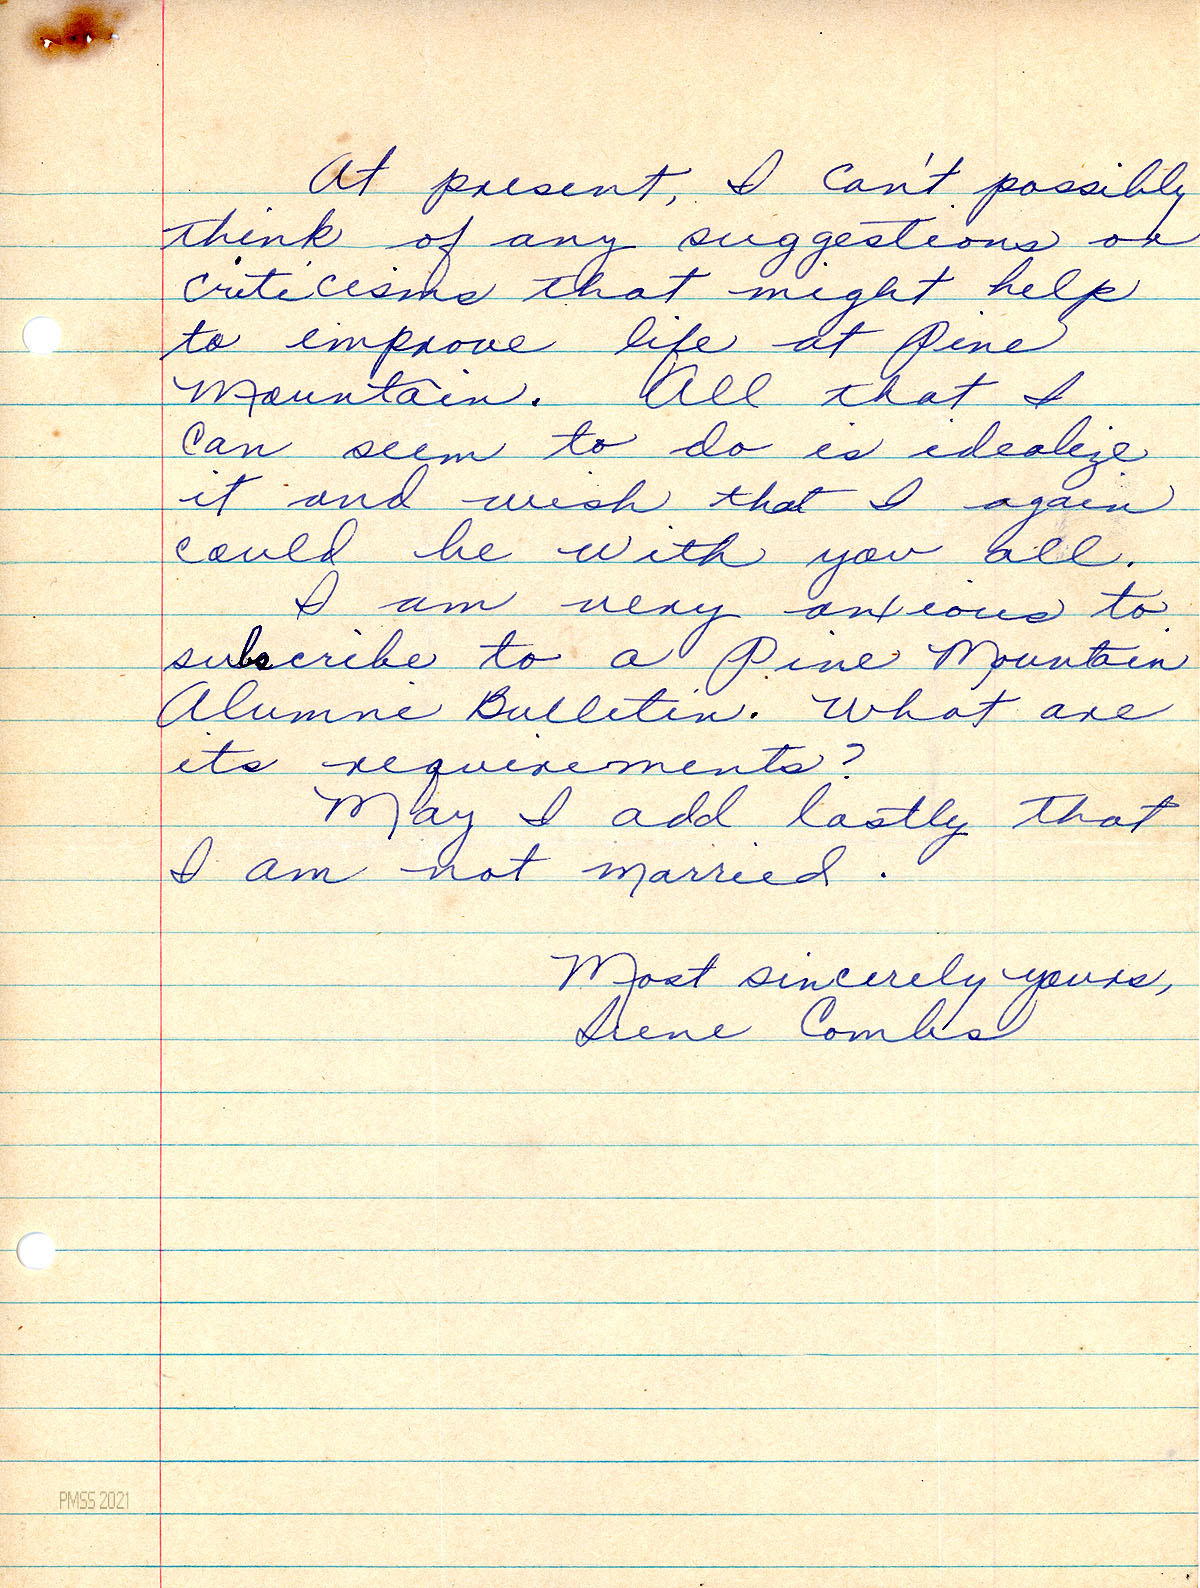 At present, I can't possibly
think of any suggestions or
criticisms that might help
to improve life at Pine
Mountain. All that I
can seem to do is idealize
it and wish that I again
could be with you all.
I am very anxious to
subscribe to a Pine Mountain
Alumni Bulletin. What are
its requirements?
May I add lastly that
I am not married.
Most sincerely yours,
Irene Combs
PMSS 2021